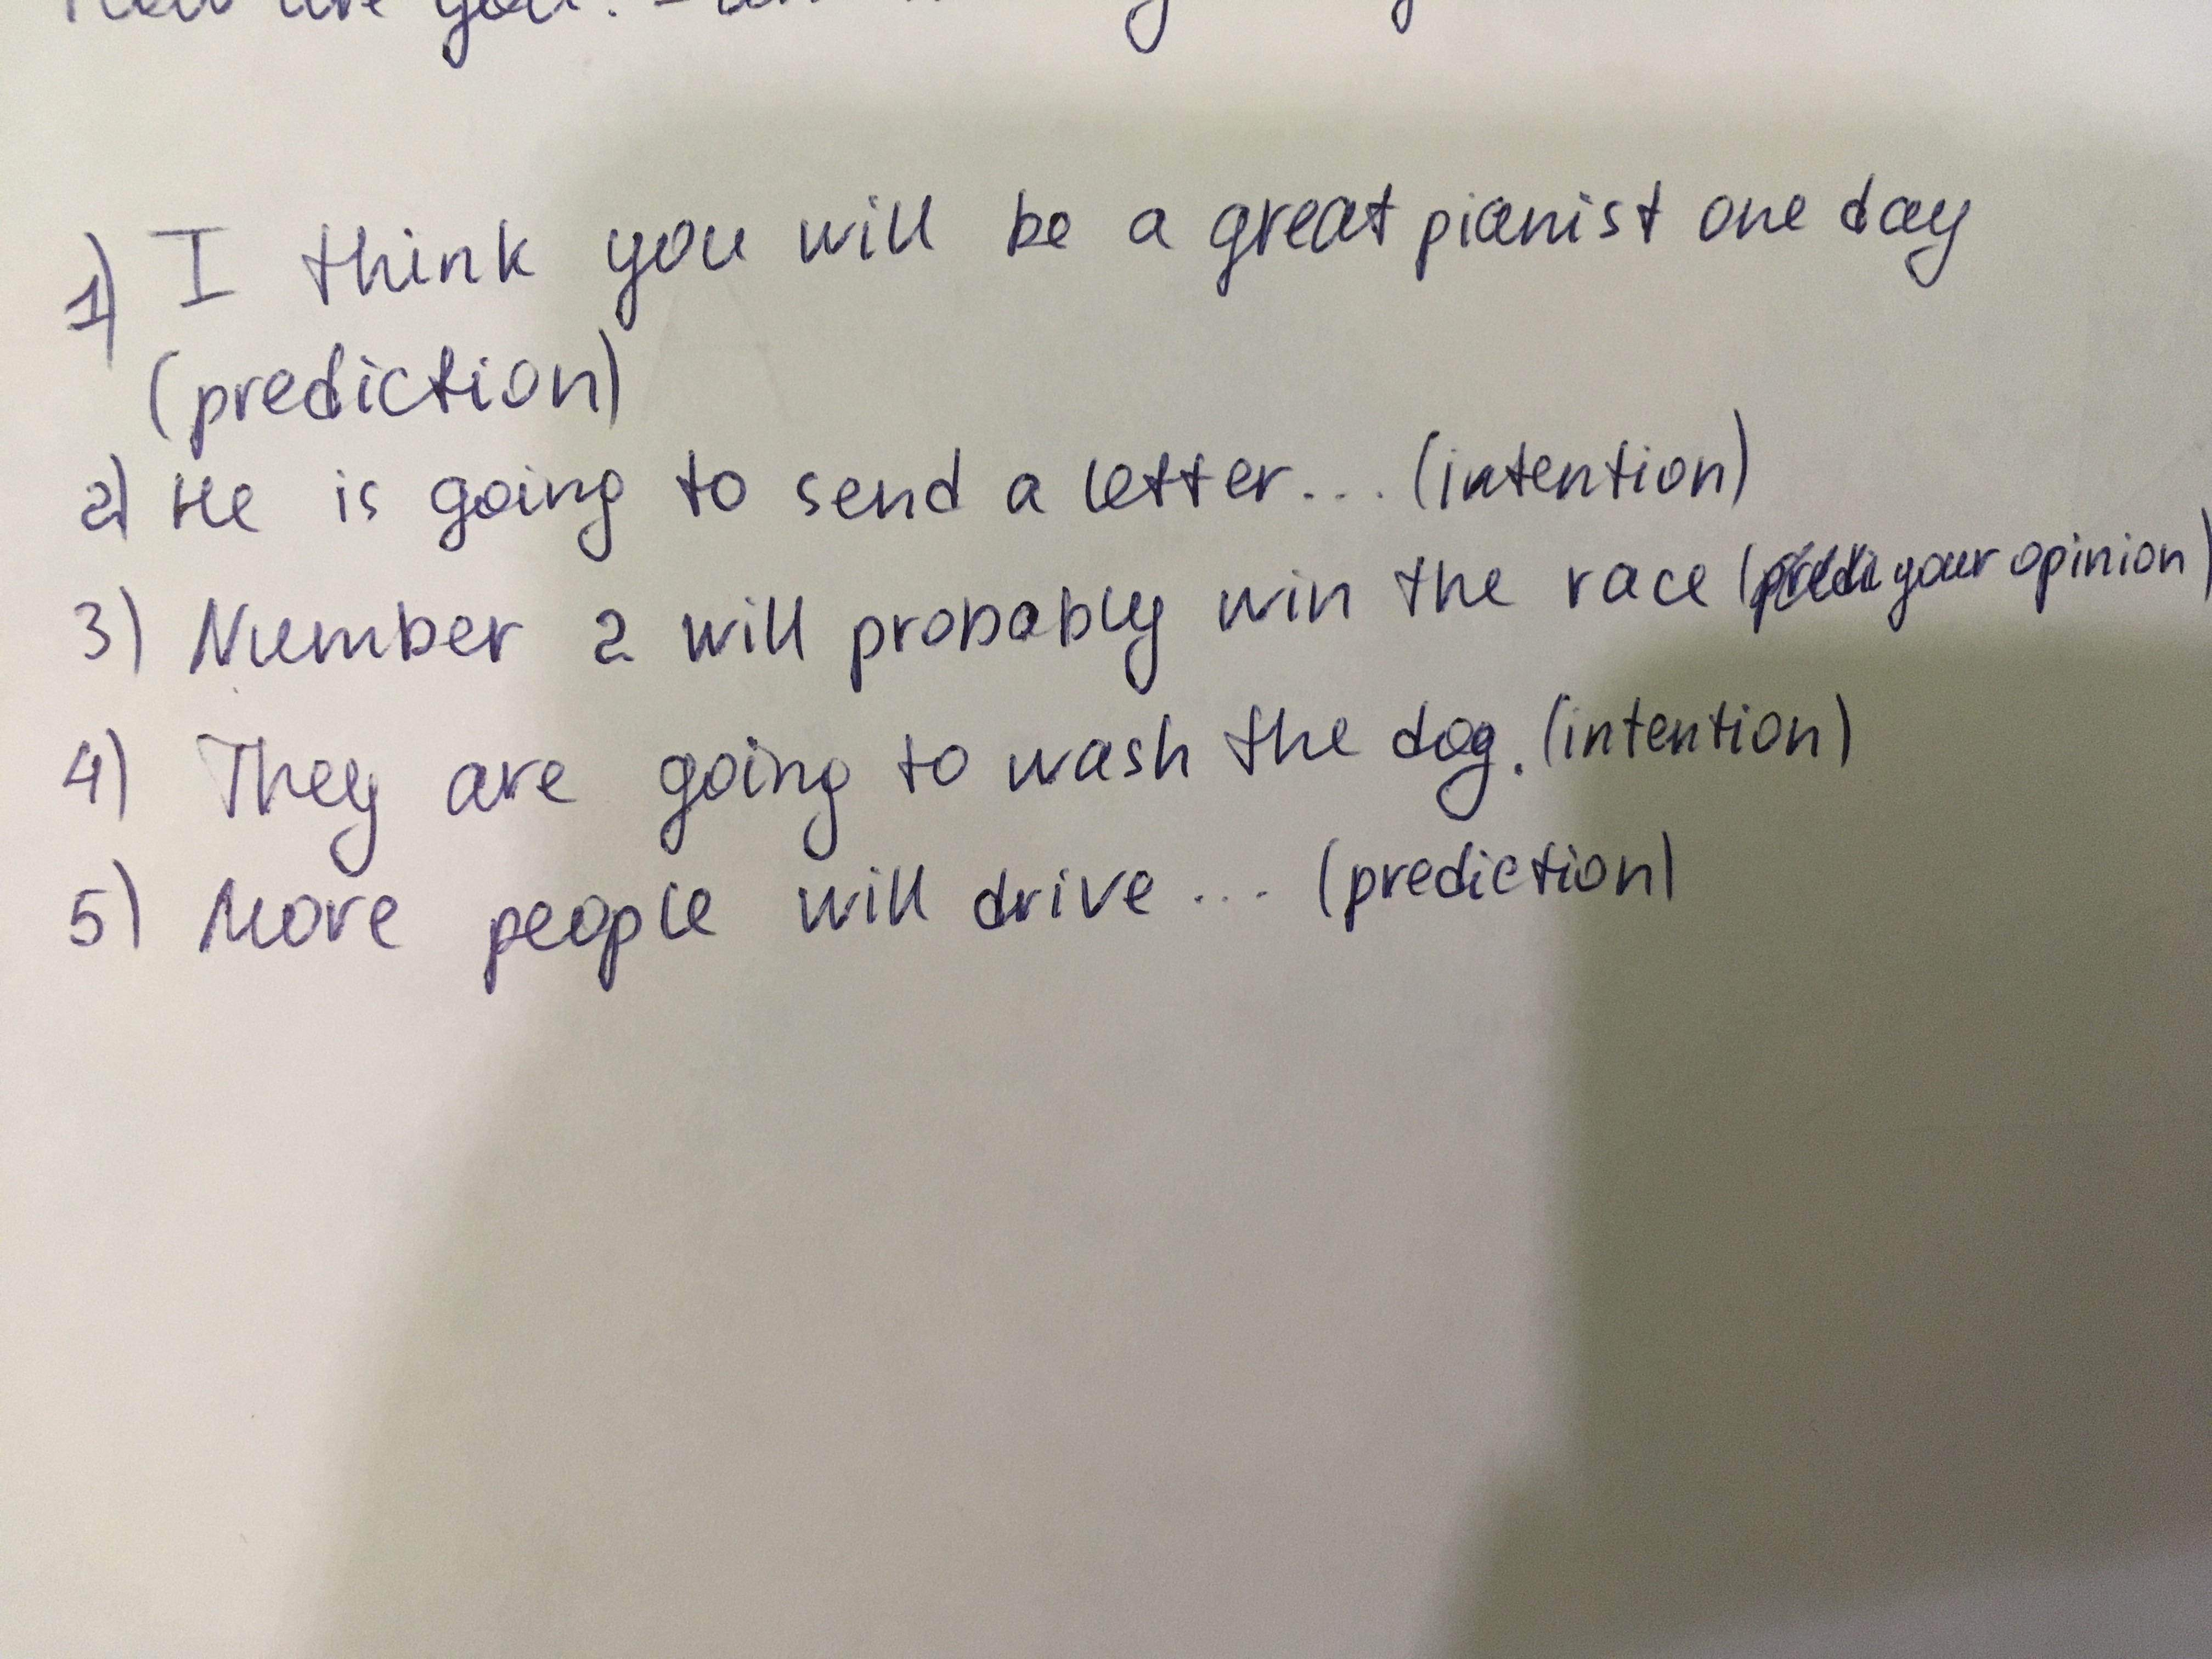 you.
1) I think you will be a great pianist one day
(prediction)
2) He is going to send a letter... (intention)
3) Number 2 will probably win the race (your opinion)
4) They are going to wash the dog. (intention)
5) More people will drive ... (prediction)